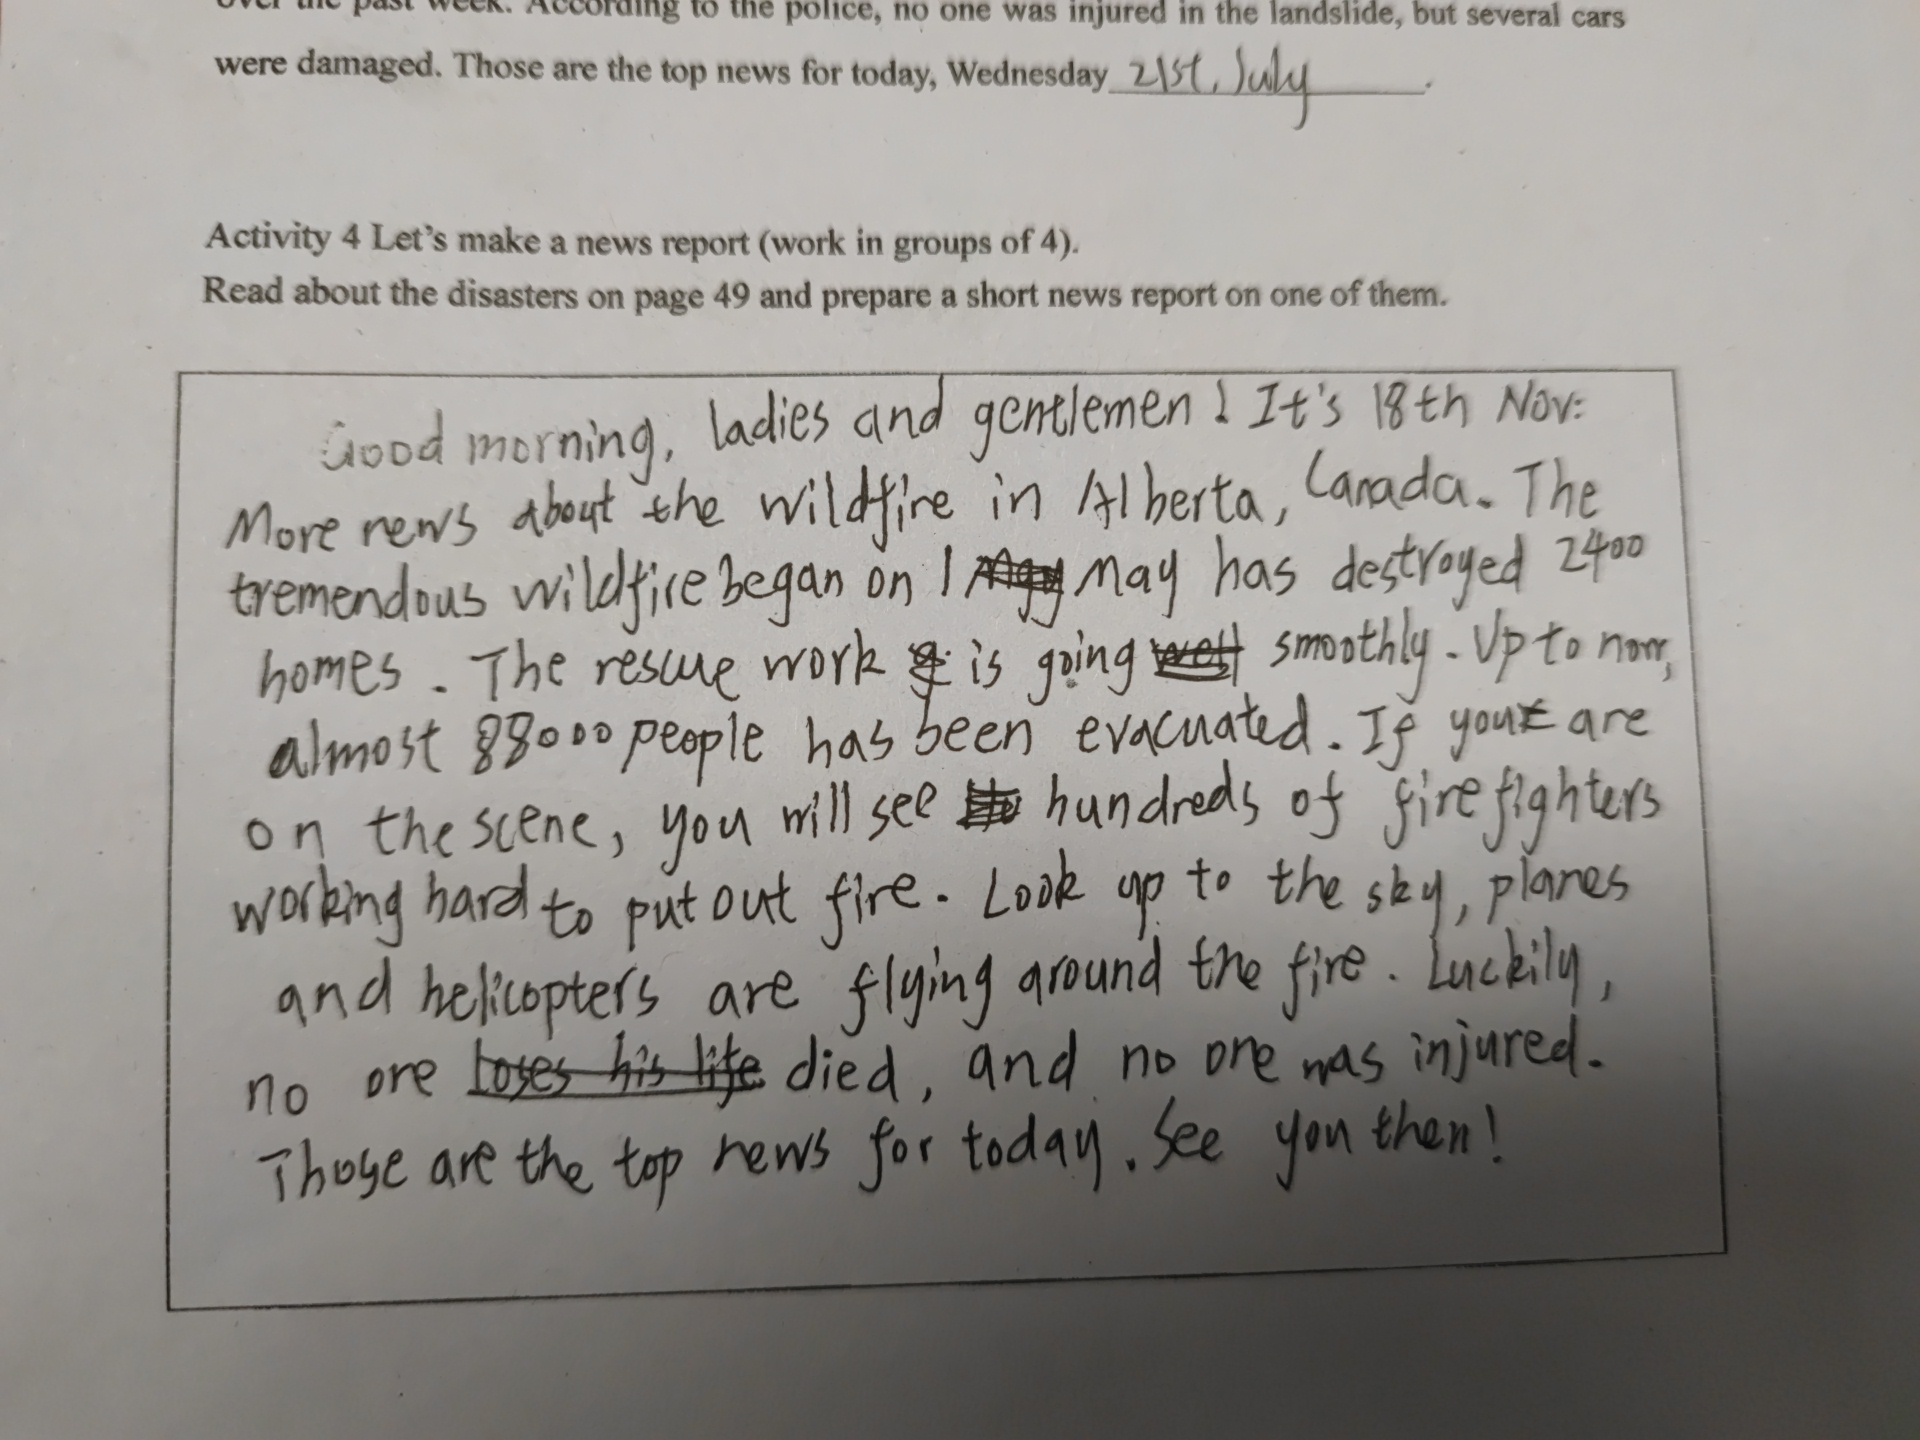 over the past week. According to the police, no one was injured in the landslide, but several cars
were damaged. Those are the top news for today, Wednesday 21st, July.
Activity 4 Let's make a news report (work in groups of 4).
Read about the disasters on page 49 and prepare a short news report on one of them.
Good morning, ladies and gentlemen! It's 18th Nov:
More news about the wildfire in Alberta, Canada. The
tremendous wildfire began on 1 May has destroyed 2400
homes. The rescue work is going smoothly. Up to now,
almost 88000 people has been evacuated. If you are
on the scene, you will see hundreds of firefighters
working hard to put out fire. Look up to the sky, planes
and helicopters are flying around the fire. Luckily,
no one loses his life died, and no one was injured.
Those are the top news for today. See you then!